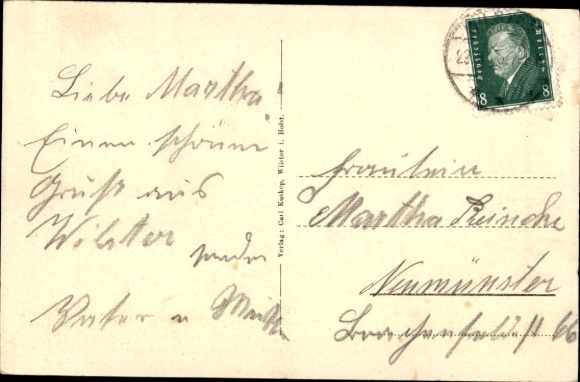 Liebe Martha!
Einen schönen
Gruß aus
Wilster
sendet
Vater u Mutter
Verlag: Carl Kuskop, Wilster i. Holst.
Deutsches Reich
8 8
Fräulein
Martha Reincke
Neumünster
66